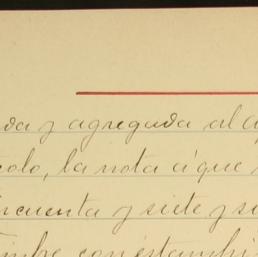 da y agregada al a
colo, la nota á que
incuenta y siete y s
imbre con estambi